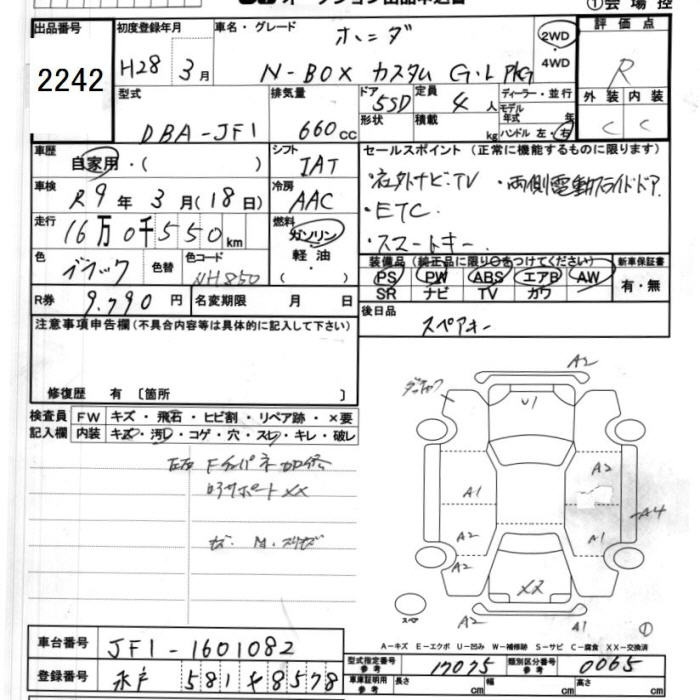 オークション出品申込書
①会場控
出品番号
2242
初度登録年月
H28 3月
車名・グレード
ホンダ
N-BOX カスタム G・L PKG
2WD
・
4WD
評価点
R
外装 内装
C C
型式
DBA-JF1
排気量
660cc
ドア
5SD
形状
定員
4人
積載
kg
ディーラー・並行
モデル
年式 年
ハンドル 左・右
車歴
自家用・( )
シフト
IAT
車検
R9年3月(18日)
冷房
AAC
走行
16万0千550km
燃料
ガソリン
軽油
( )
色
ブラック
色替
色コード
NH850
R券 9,790円
名変期限 月 日
セールスポイント(正常に機能するものに限ります)
・社外ナビ・TV ・両側電動スライドドア
・ETC
・スマートキー
装備品(純正品に限り○をつけてください)
PS PW ABS エアB AW
SR ナビ TV カワ
新車保証書
有・無
後日品
スペアキー
注意事項申告欄(不具合内容等は具体的に記入して下さい)
修復歴 有〔箇所 〕
検査員
記入欄
FW キズ・飛石・ヒビ割・リペア跡・×要
内装 キズ・汚れ・コゲ・穴・スレ・キレ・破レ
XX
A2
U1
A2
A1
A4
A2
A1
A2
XX
スペア
A2
A1
①
A-キズ E-エクボ U-凹み W-補修跡 S-サビ C-腐食 XX-交換済
車台番号
JF1-1601082
登録番号
水戸 581 や 8578
型式指定番号
参考
17075
類別区分番号
参考
0065
車庫証明用
参考
長さ cm
幅 cm
高さ cm